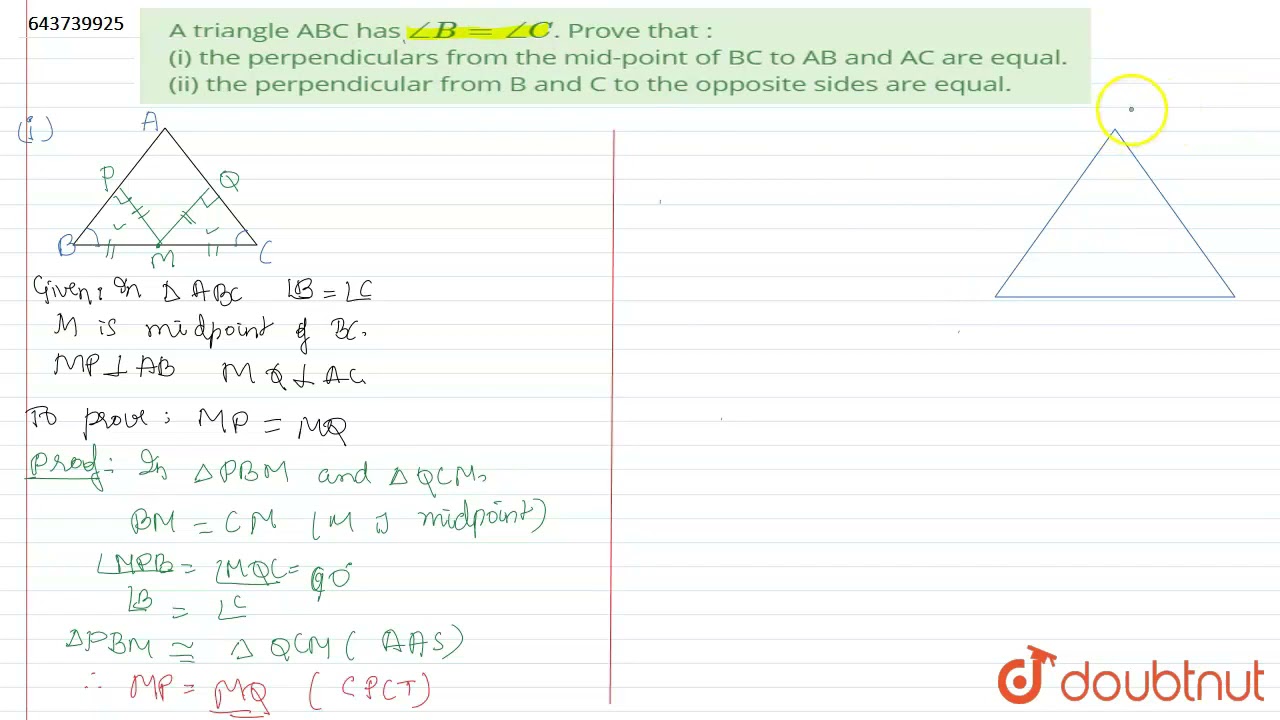 643739925
A triangle ABC has ∠B = ∠C. Prove that :
(i) the perpendiculars from the mid-point of BC to AB and AC are equal.
(ii) the perpendicular from B and C to the opposite sides are equal.
(i)
A
P Q
B M C
Given: In △ ABC ∠B = ∠C
M is midpoint of BC.
MP ⊥ AB MQ ⊥ AC
To prove: MP = MQ
Proof: In △PBM and △QCM,
BM = CM (M is midpoint)
∠MPB = ∠MQC = 90°
∠B = ∠C
△PBM ≅ △QCM (AAS)
∴ MP = MQ (CPCT)
doubtnut